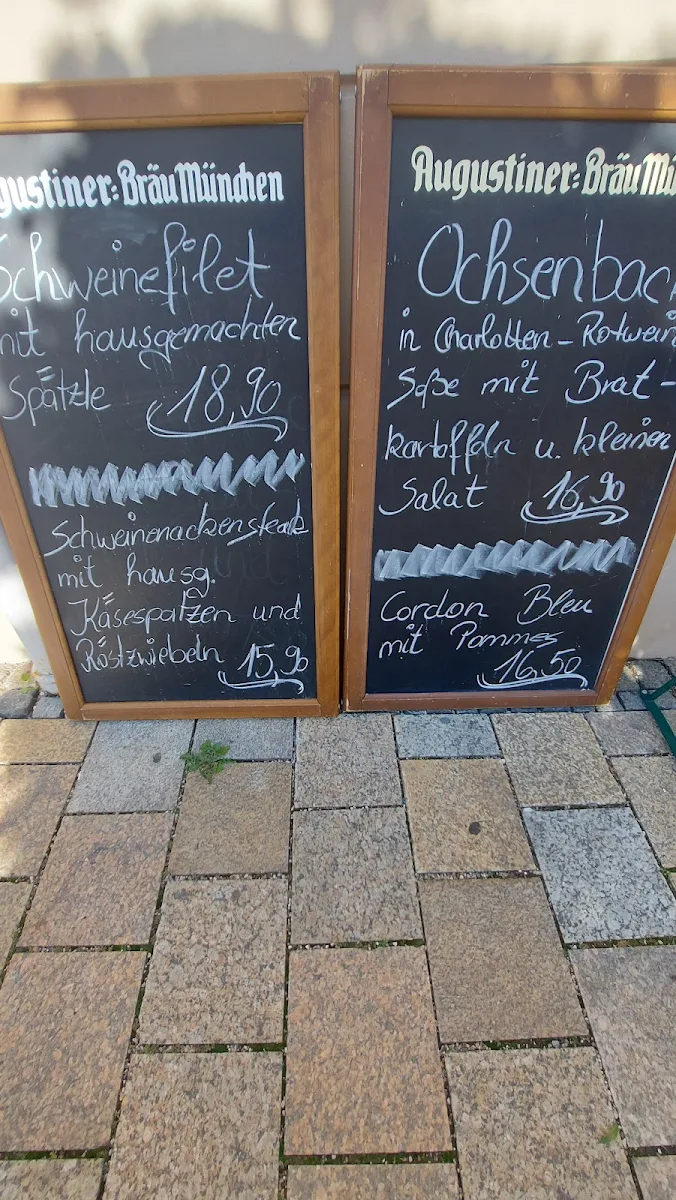 gustiner:Bräu München
Schweinefilet
mit hausgemachten
Spätzle 18,90
Schweinenackensteak
mit hausg.
Käsespatzen und
Röstzwiebeln 15,90
Augustiner:Bräu Mü
Ochsenbac
in Charlotten-Rotwein
Soße mit Brat-
kartoffeln u. kleinen
Salat 16,90
Cordon Bleu
mit Pommes
16,50